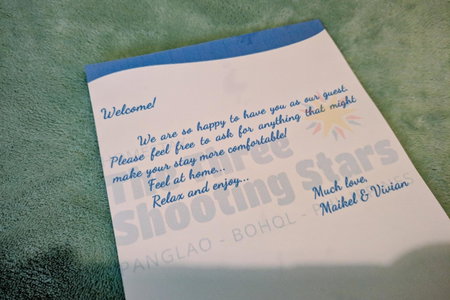 Welcome!
We are so happy to have you as our guest.
Please feel free to ask for anything that might
make your stay more comfortable!
Feel at home...
Relax and enjoy...
Much love,
Maikel & Vivian
Three
Shooting Stars
PANGLAO - BOHOL -